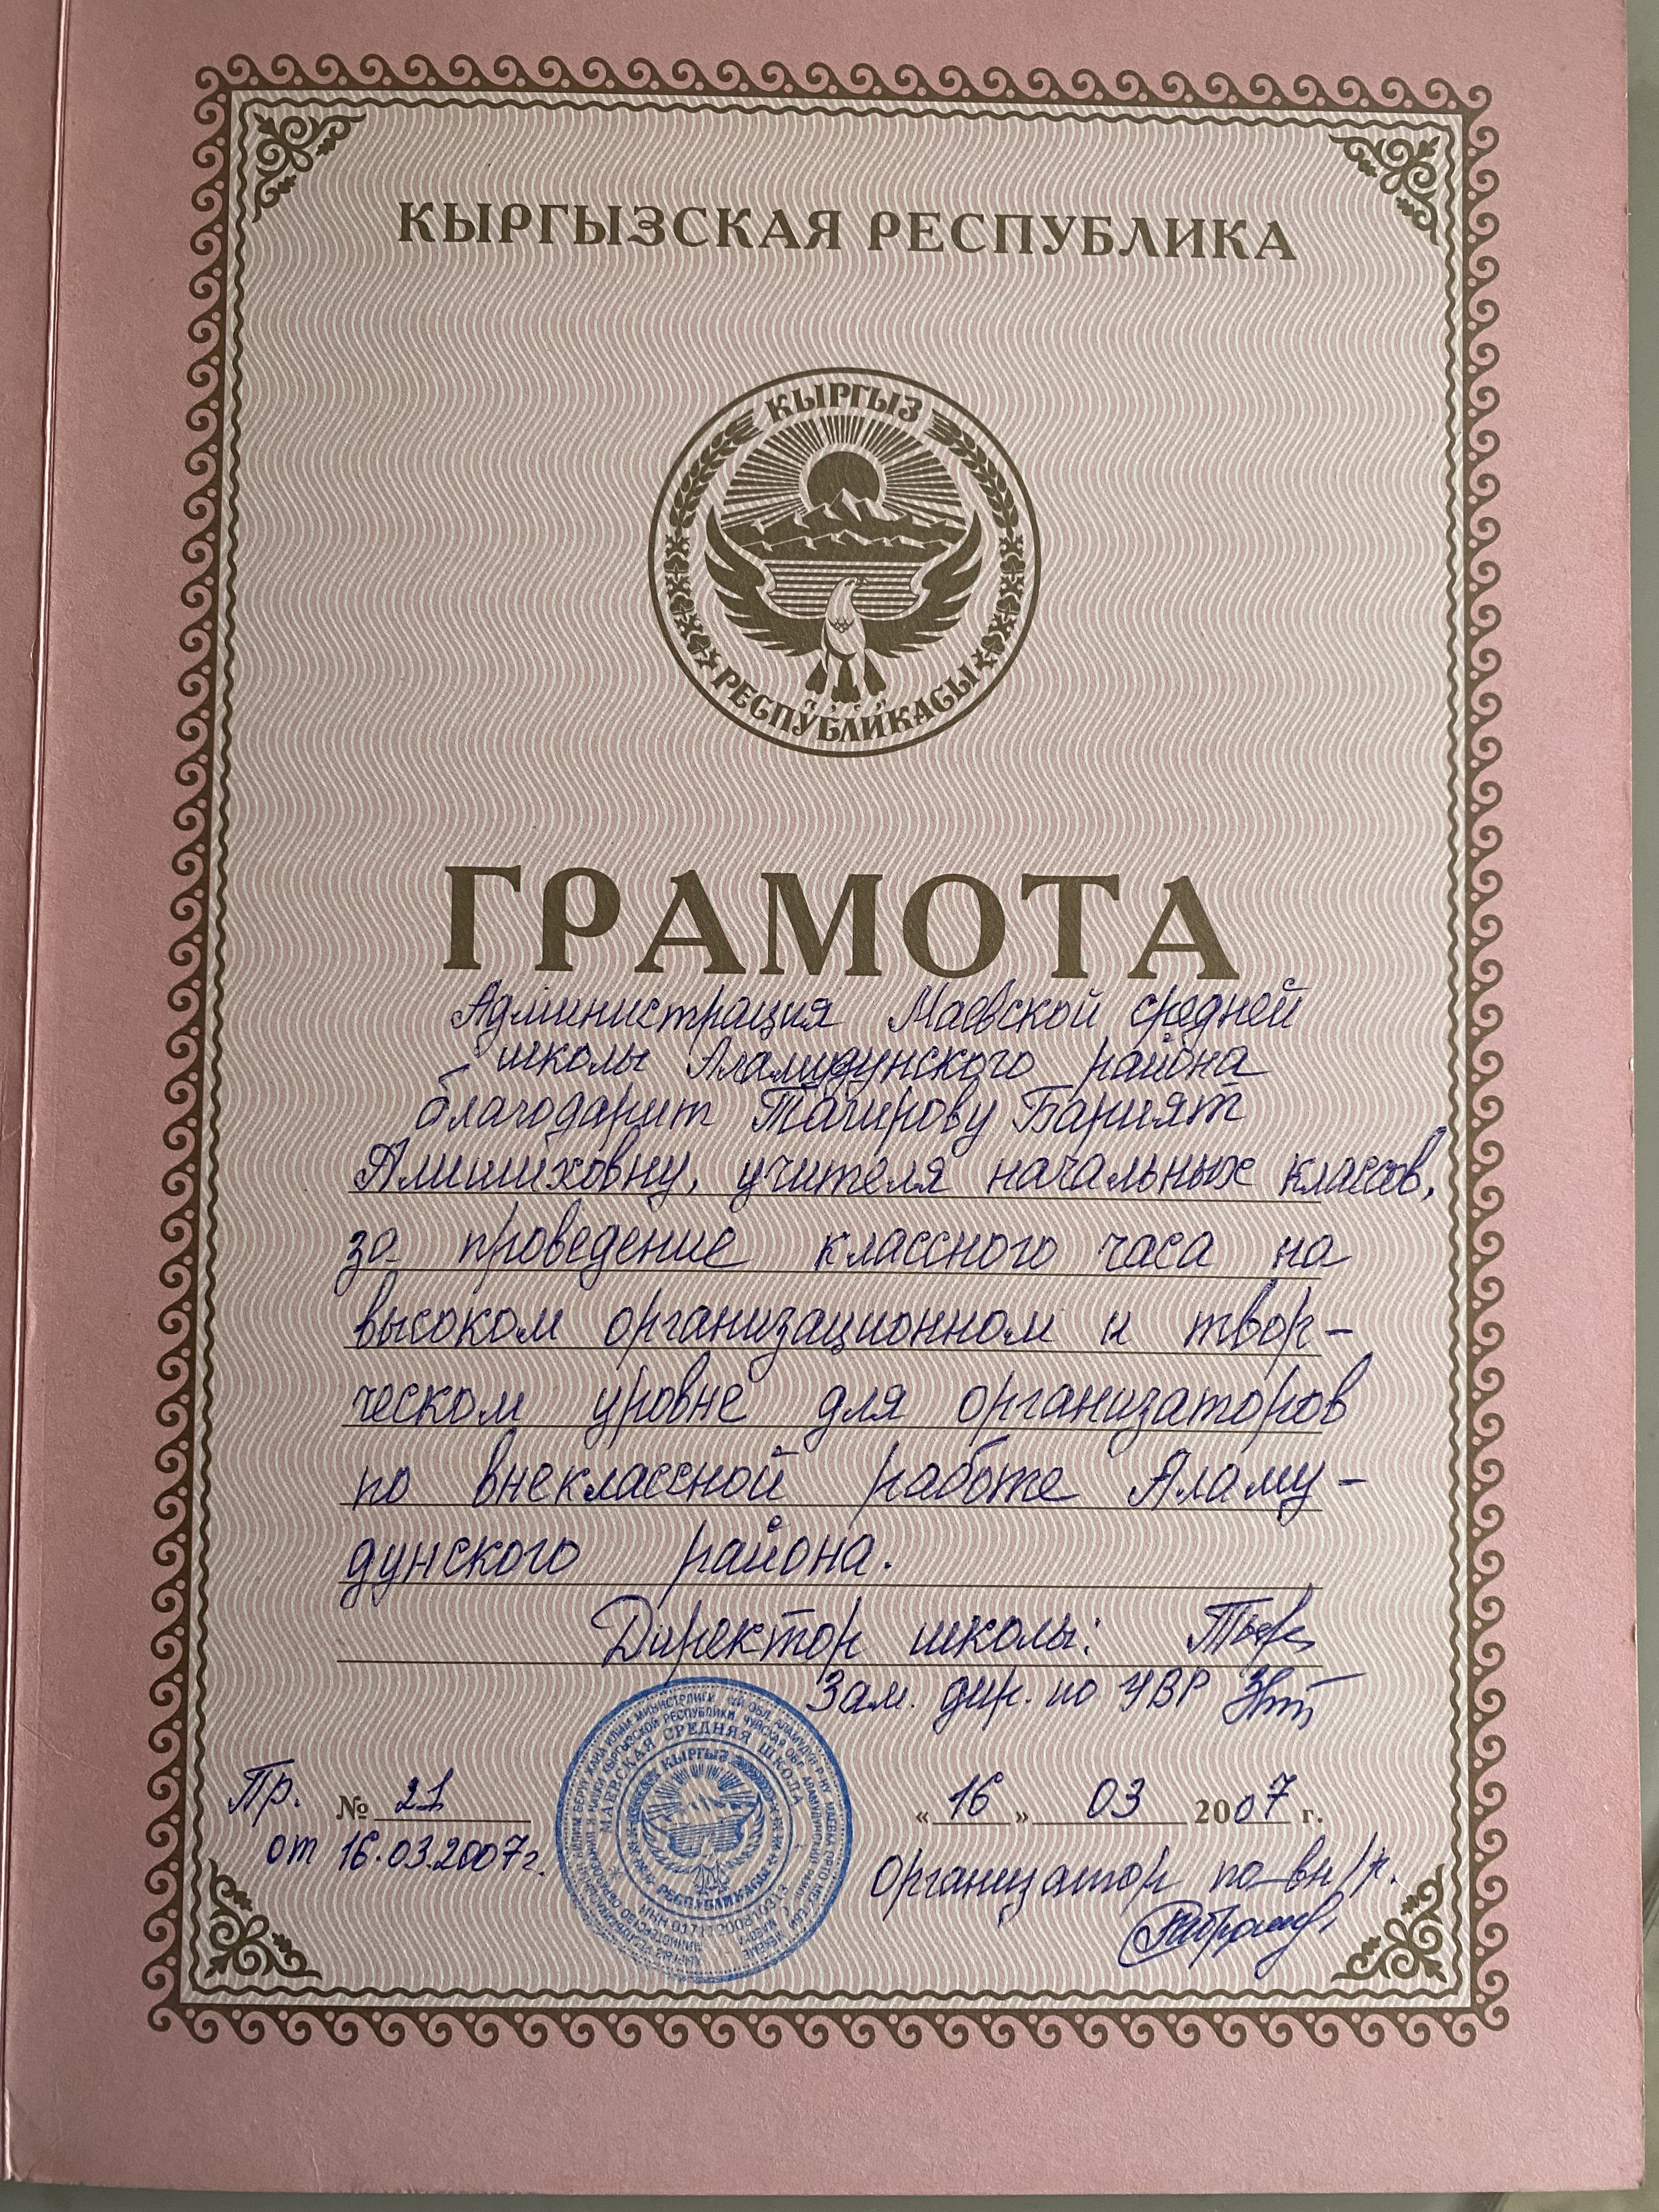 КЫРГЫЗСКАЯ РЕСПУБЛИКА
КЫРГЫЗ
РЕСПУБЛИКАСЫ
ГРАМОТА
Администрация Маевской средней
школы Аламудунского района
благодарит Тагирову Barият
Алишиховну, учителя начальных классов,
за проведение классного часа на
высоком организационном и твор-
ческом уровне для организаторов
по внеклассной работе Аламу-
дунского района.
Директор школы:
Зам. дир. по УВР
Пр. № 21
от 16.03.2007г.
« 16 » 03 2007 г.
Организатор по вн/р.
МАЕВСКАЯ СРЕДНЯЯ ШКОЛА
КЫРГЫЗ
РЕСПУБЛИКАСЫ